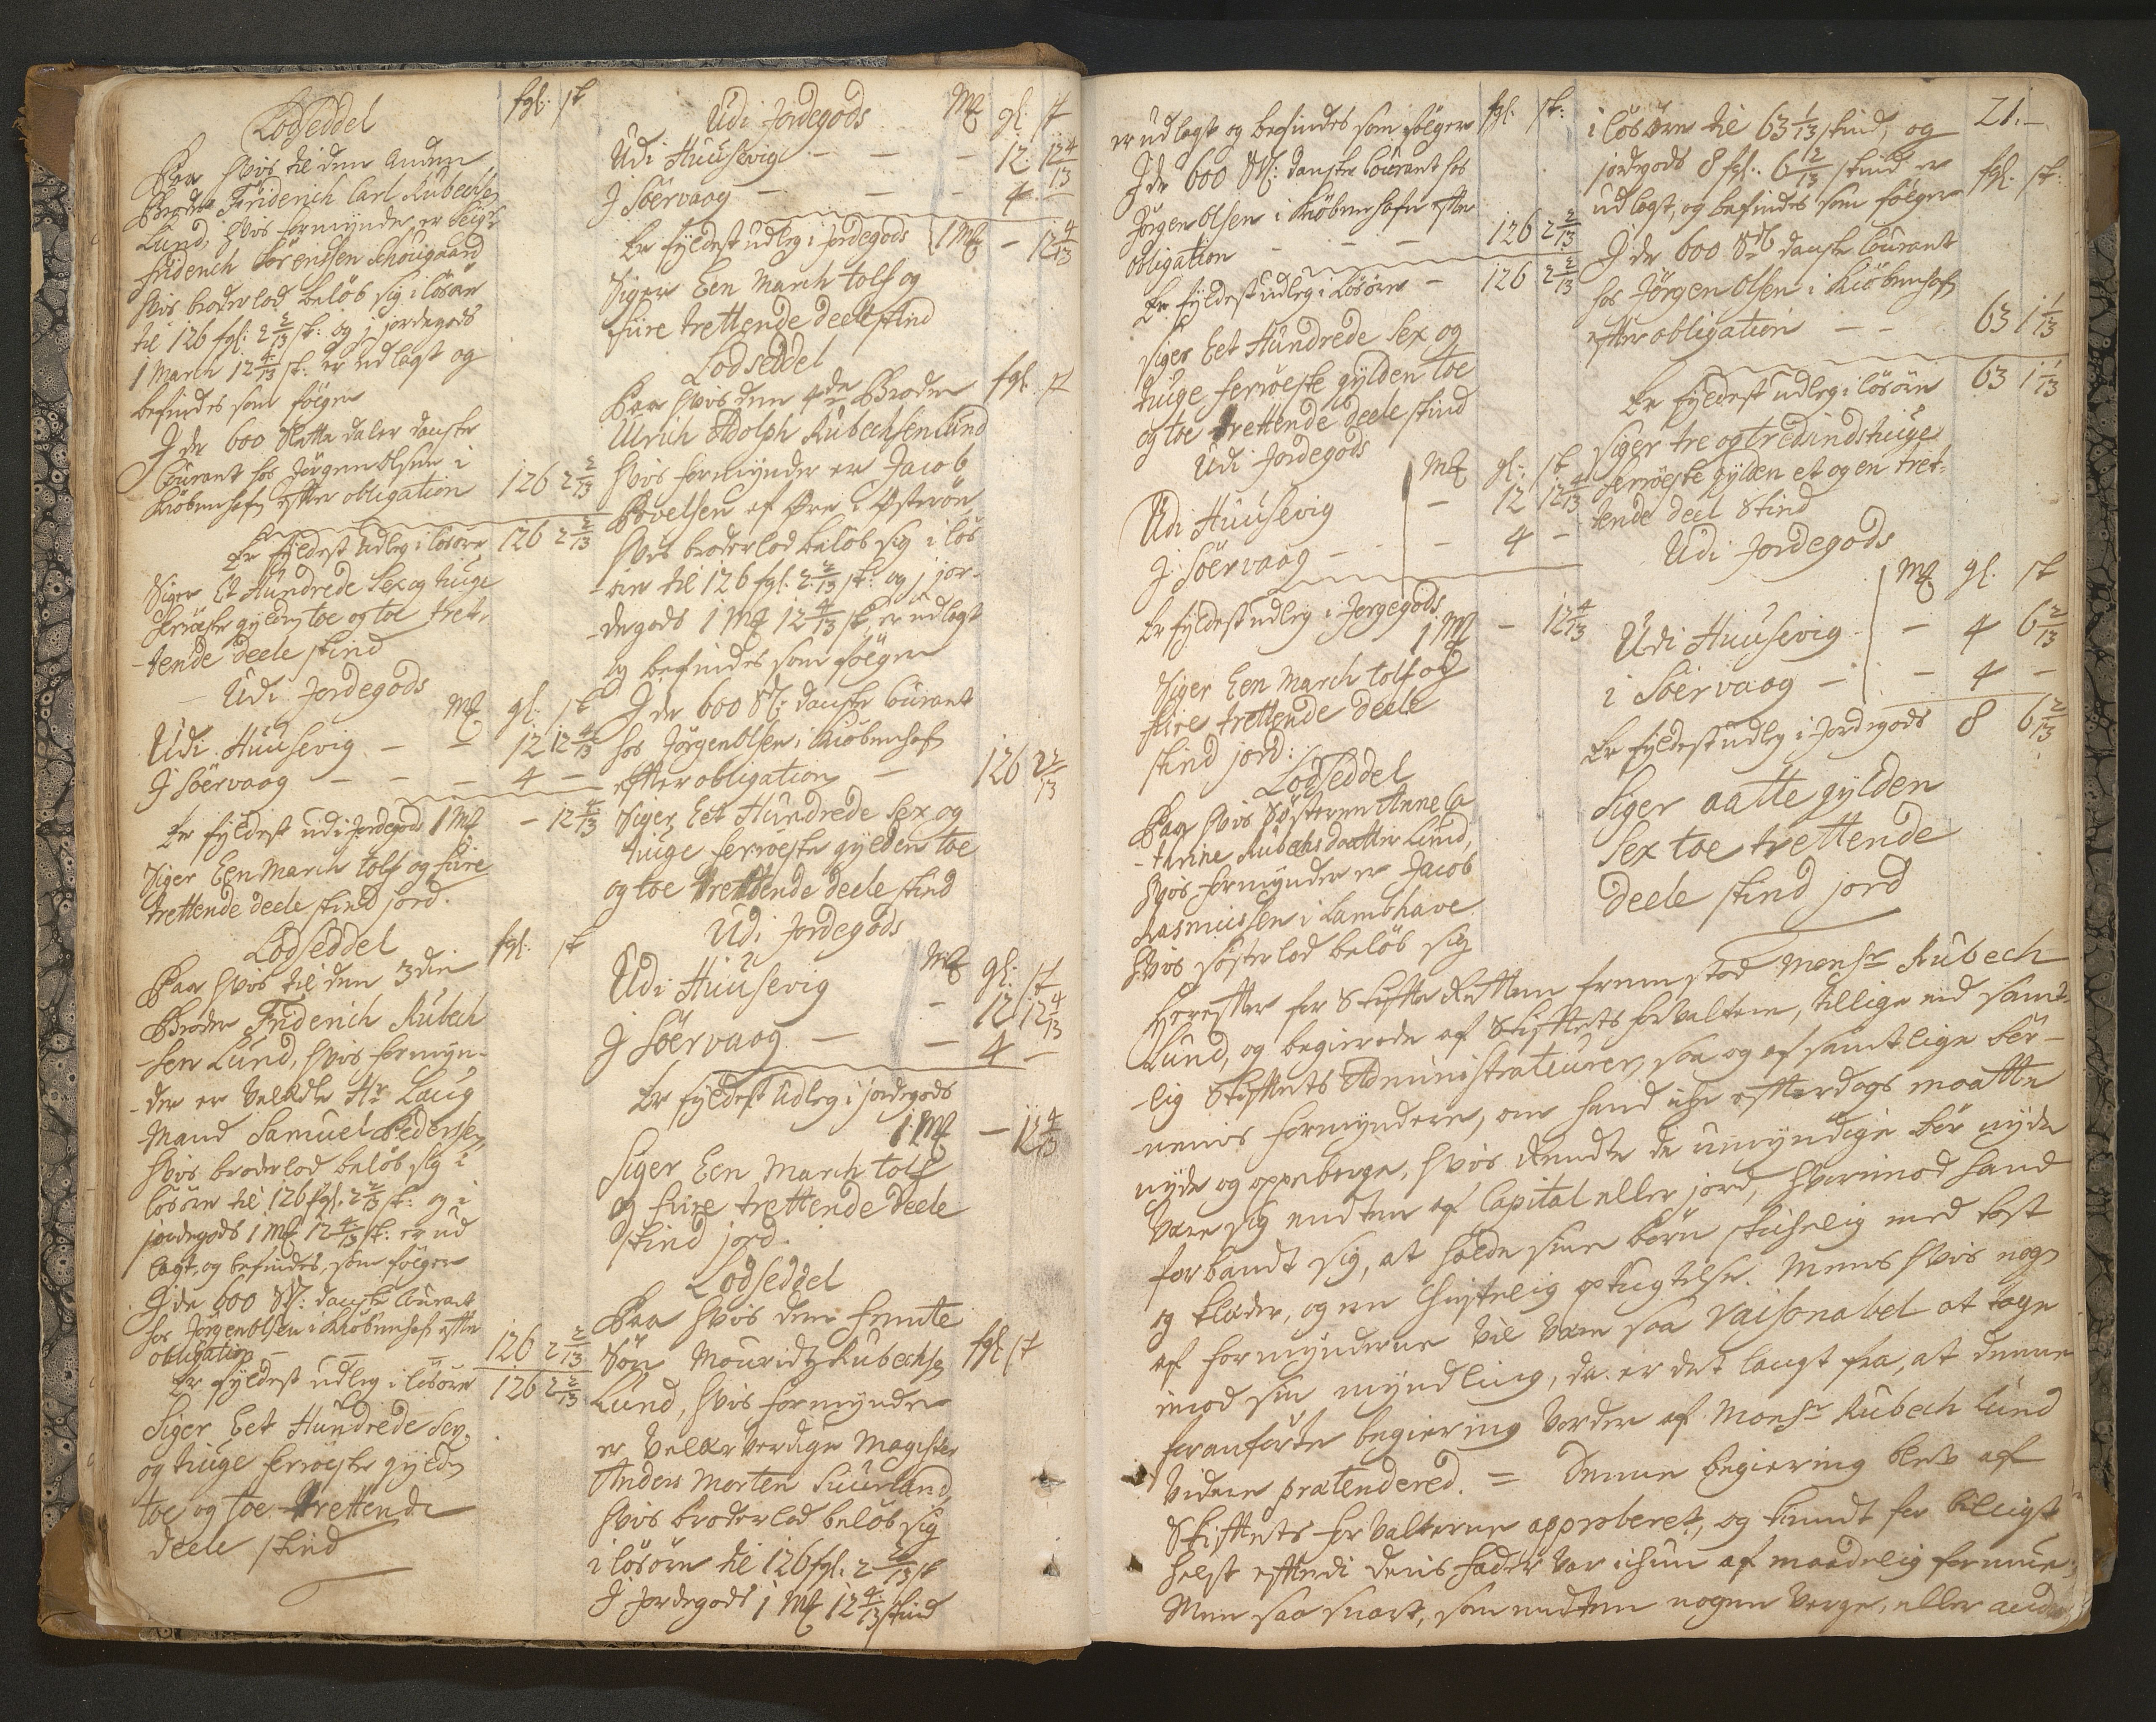 Lodseddel
fgl: sk
Paa hvis til den Anden
Broder Friderich Carl Rubechs
Lund, hvis formynder er Seigr
fridench Sörenssen Schougaard
hvis broderlod beløb sig i lösör
til 126 fgl: 2 2/13 sk: og j jordegods
1 March 12 4/13 sk: er udlagt og
befindes som følger
J de 600 Slette daler danske
Courant hos Jörgen Olsen i
Kiöbenhafn efter obligation 126 2 2/13
Er fyldest udleg i lösöre 126 2 2/13
Siger Et Hundrede Sex og tiuge
ferröeske gylden toe og toe tret-
-tende deele skind
Udi Jordegods
Mk gl: sk
Udi Huusevig — — 12 12 4/13
J Söervaag — — — 4 —
Er fyldest udi Jordegods 1 Mk — 12 4/13
Siger Een March tolf og fiire
trettende deele skind jord.
Lodseddel
fgl: sk
Paa hvis til den 3die
Broder Friderich Rubech
-sen Lund, hvis formyn-
-der er Velædle Hr Laug
-Mand Samuel Pedersen,
hvis broderlod beløb sig i
lösöre til 126 fgl: 2 2/13 sk: og i
jordegods 1 Mk 12 4/13 sk: er ud
lagt, og befindes, som følger
J de 600 Sld: danske Courant
hos Jörgen Olsen i Kiöbenhafn efter
obligation — — 126 2 2/13
Er fyldest udleg i lösöre 126 2 2/13
Siger Eet Hundrede Sex
og tiuge ferröeske gylden
toe og toe trettende
deele skind
Udi Jordegods
Mk gl: sk
Udi Huusevig — — — 12 12 4/13
J Söervaag — — — 4 —
Er fyldest udleg i Jordegods 1 Mk — 12 4/13
Siger Een March tolf og
fiire trettende deele skind
Lodseddel
Paa hvis den 4de Broder fgl: sk
Ulrich Adolph Rubechsen Lund
hvis formynder er Jacob
Povelsen af Öre i Österöe,
hvis broderlod beløb sig i lös
-öre til 126 fgl: 2 2/13 sk: og j jor-
-degods 1 Mk 12 4/13 sk, er udlagt
og befindes som følger
J de 600 Sl: danske Courant
hos Jörgen Olsen i Kiöbenhafn
efter obligation — 126 2 2/13
Siger Eet Hundrede Sex og
tiuge ferröeske gylden toe
og toe trettende deele skind
Udi Jordegods
Mk gl: sk
Udi Huusevig — 12 12 4/13
J Söervaag — — 4 —
Er fyldest udleg i jordegods
1 Mk — 12 4/13
Siger Een March tolf
og fiire trettende deele
skind jord.
Lodseddel
Paa hvis den femte
Sön Mouridtz Rubechsen fgl: sk
Lund, hvis formynder
er Velærverdige Magister
Anders Morten Suurland,
hvis broderlod beløb sig
i lösöre til 126 fgl: 2 2/13 sk
J Jordegods 1 Mk 12 4/13 skind
21.
er udlagt og befindes som følger fgl: sk:
J de 600 Sld: danske Courant hos
Jörgen Olsen i Kiöbenhafn efter
obligation — — — 126 2 2/13
Er fyldest udleg i Lösöre — 126 2 2/13
Siger Eet Hundrede Sex og
tiuge ferröeske gylden toe
og toe trettende deele skind
Udi Jordegods
Mk gl: sk
Udi Huusevig — 12 12 4/13
J Söervaag — — 4 —
Er fyldest udleg i Jorgegods
1 Mk — 12 4/13
Siger Een March tolf og
fiire trettende deele
skind jord:
Lodseddel
Paa hvis Söstern Anne Ca
-trine Rubechsdaatter Lund,
hvis formynder er Jacob
Rasmussen i Lambhave
hvis søsterlod beløb sig
i lösöre til 63 1 1/13 skind, og
jordegods 8 fgl: 6 2/13 skind er
udlagt, og befindes som følger fgl: sk:
J de 600 Sld danske Courant
hos Jörgen Olsen i Kiöbenhafn
efter obligation — — 63 1 1/13
Er fyldest udleg i lösöre 63 1 1/13
Siger tre og tredindstiuge
ferröeske gylden et og en tret-
tende deel Skind
Udi Jordegods
Mk gl: sk
Udi Huusevig — 4 6 2/13
i Söervaag — — 4 —
Er fyldest udleg i Jordegods 8 6 2/13
Siger aatte gylden
Sex toe trettende
deele skind jord
Herefter for Skifte Retten fremstod Monsr Rubech
Lund, og begierede af Skiftets forvaltere, tillige med samt-
-lig Skiftets Administrateurer, saa og af samtlige bör-
-nenis formyndere, om hand ike efterdags maatte
nyde og oppeberge, hvis Rendte de umyndige bör nyde
være sig endten af Capital eller jord, hvorimod hand
forbandt sig, at holde sine börn skichelig med kost
og klæder, og en christelig optugtelse. Mens hvis nogen
af formynderne vil være saa raisonabel at tage
imod sin myndling, da er det langt fra, at denne
foranførte begiering vorder af Monsr Rubech Lund
videre prætendered. = Denne begiering blev af
Skiftets forvalterne approberet, og kiendt for billigst
helst efterdi deris fader var ichun af maadelig formue:
Men saa snart, som endten nogen verge, eller anden